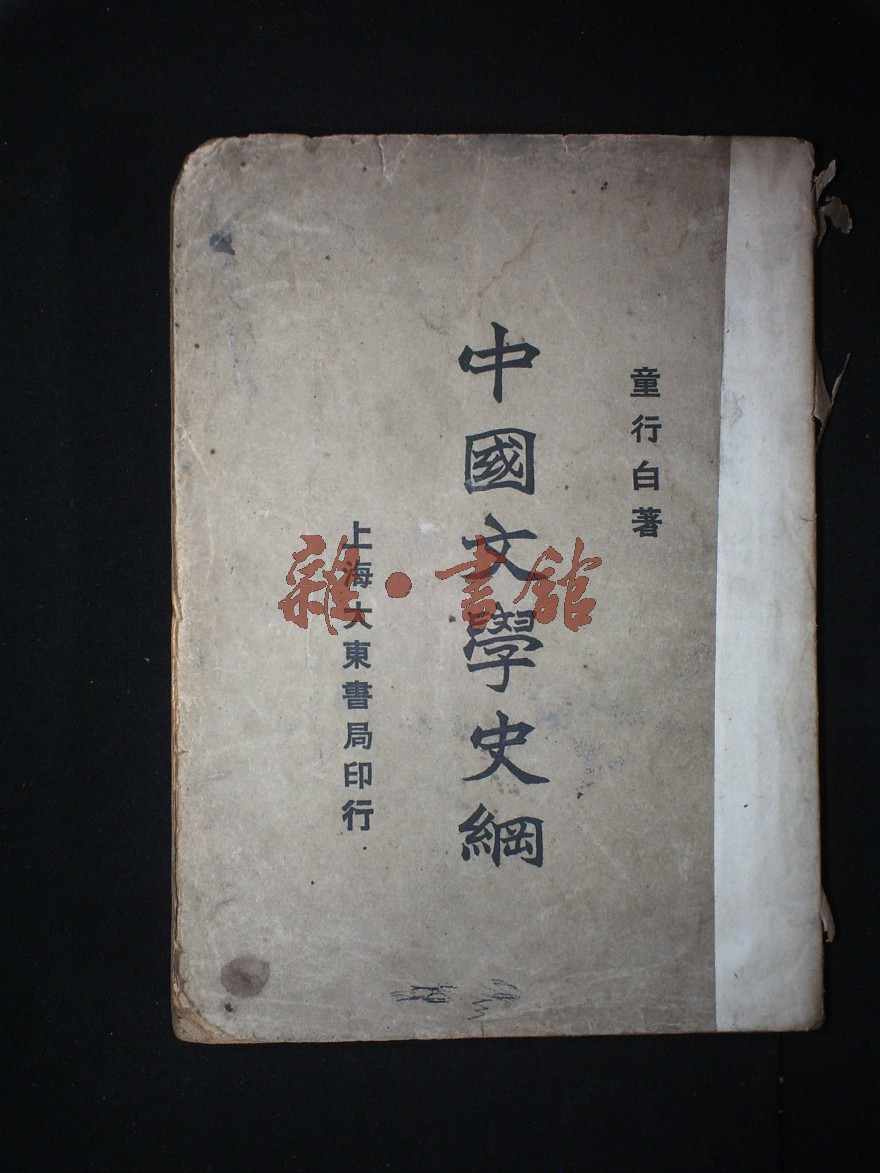 童行白著
中國文學史綱
上海大東書局印行
雜·書館